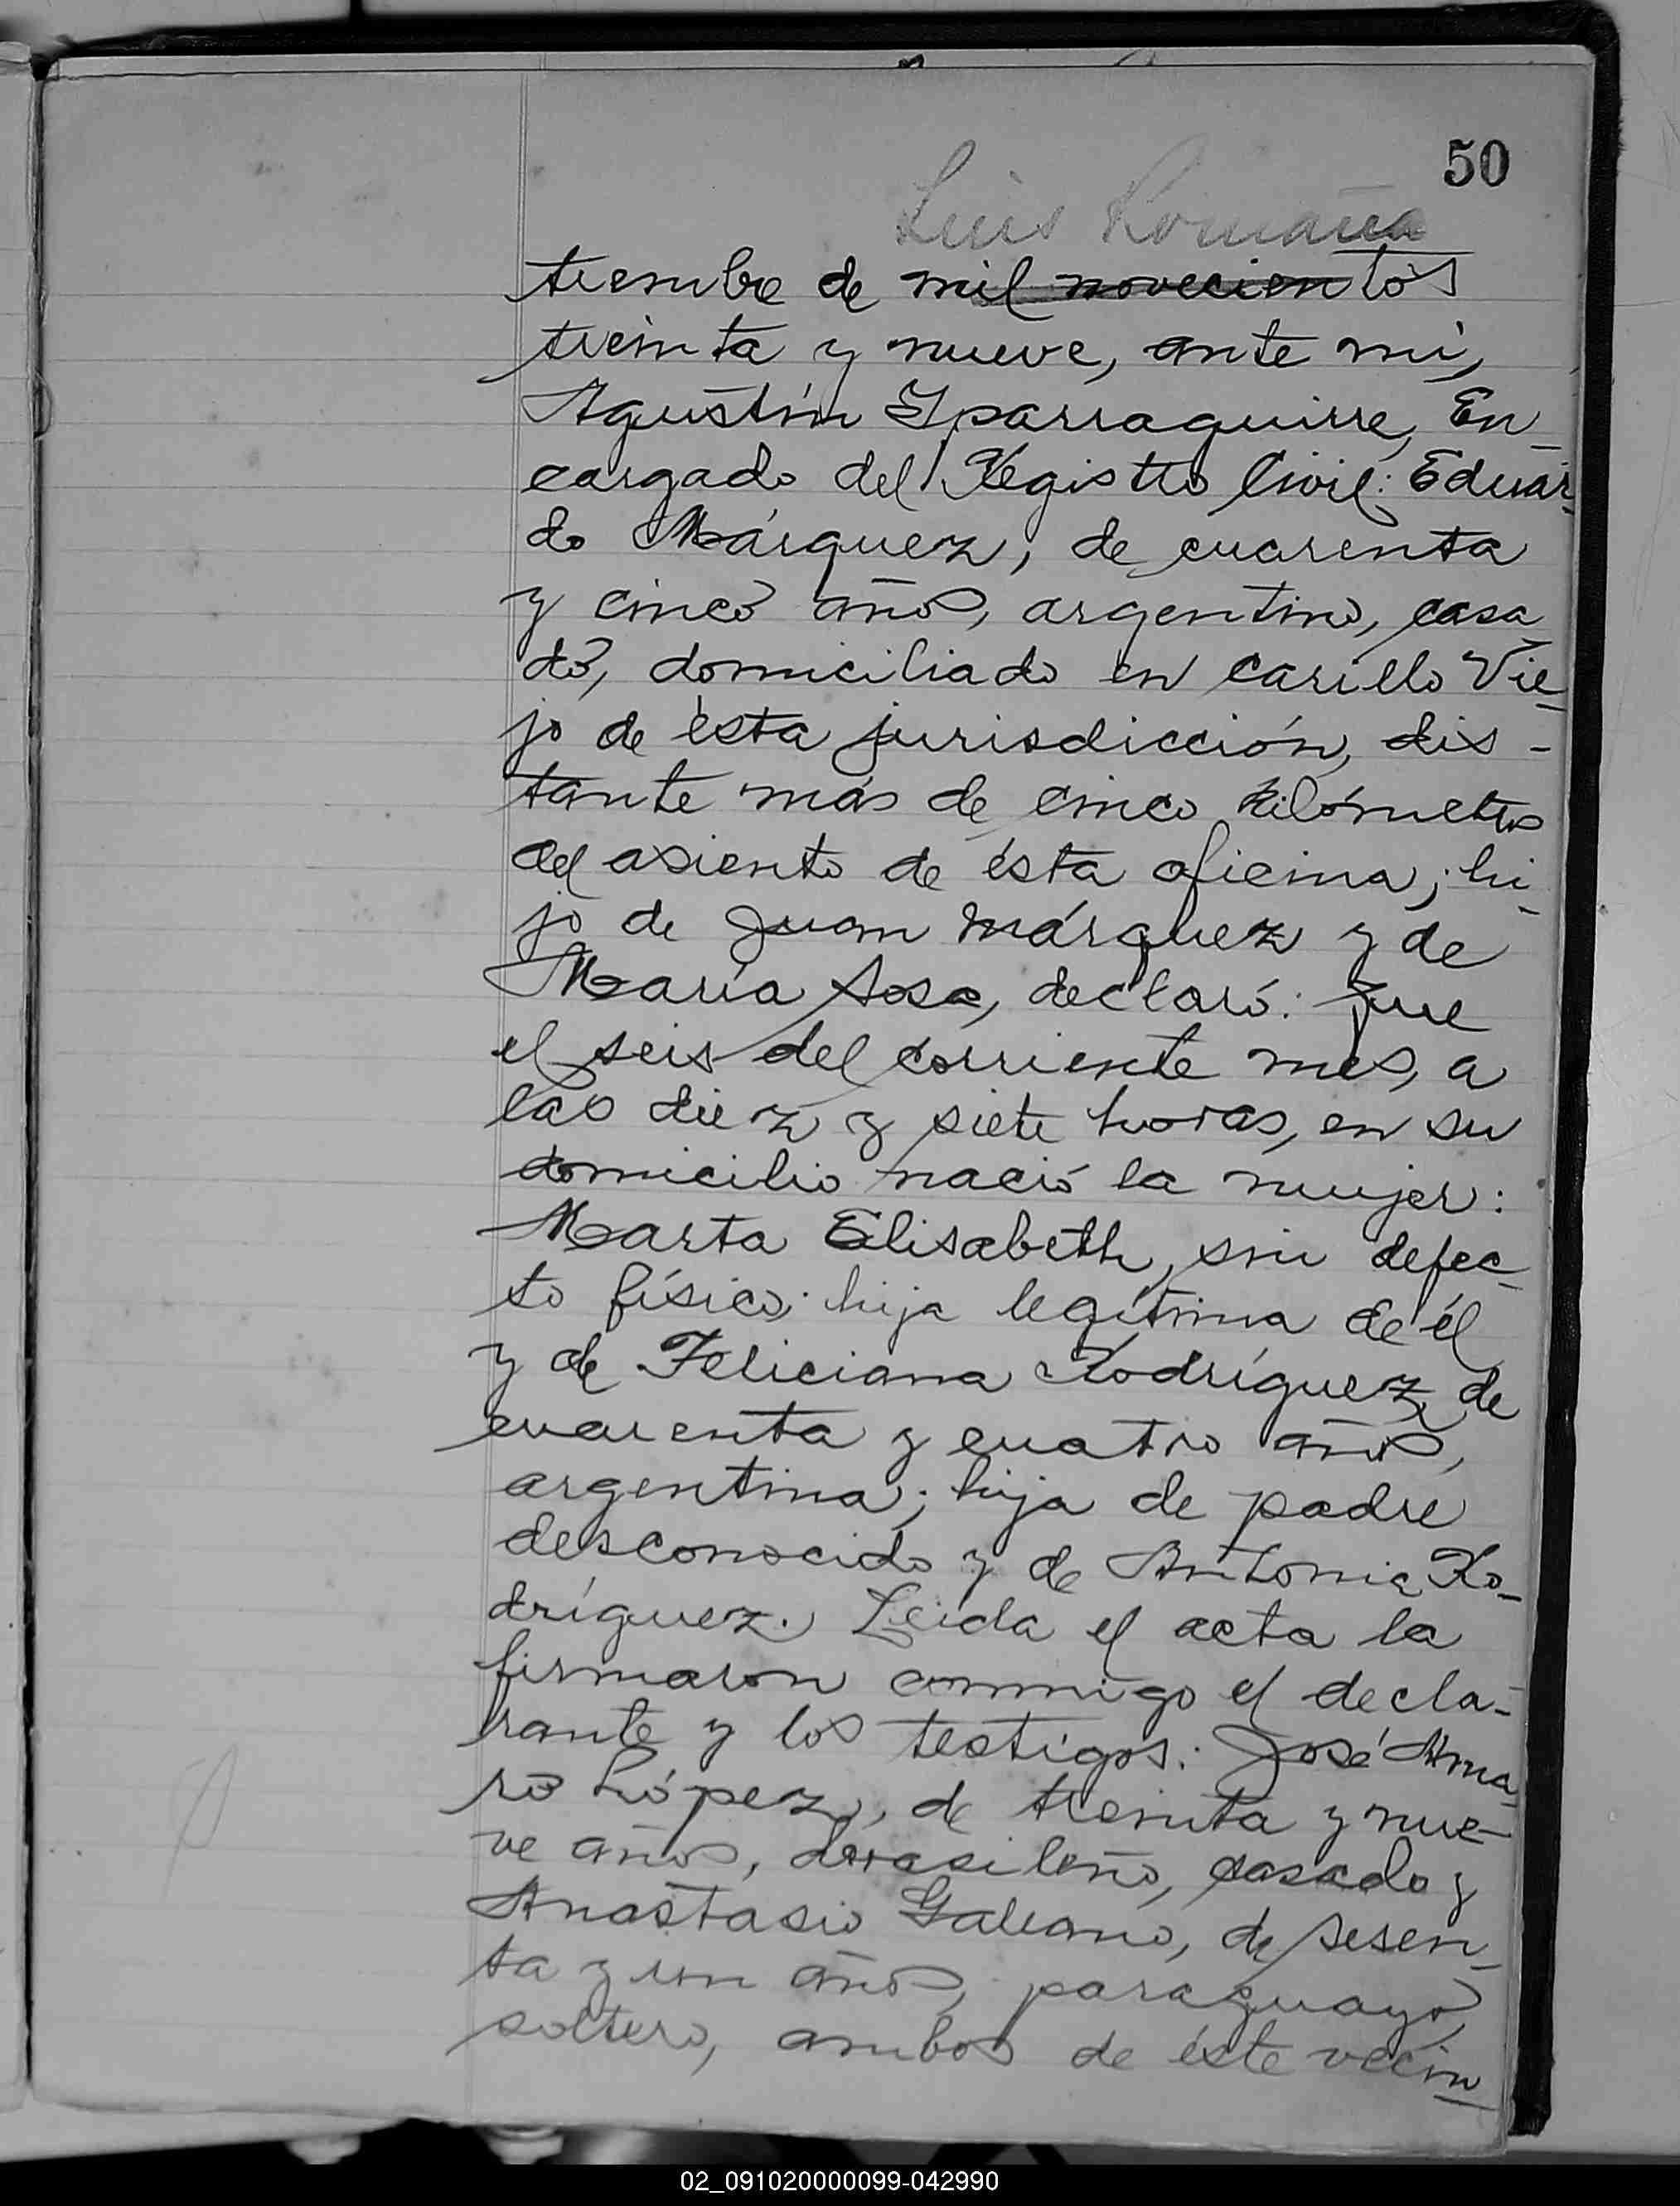 50
Luis Romaña
tiembre de mil novecientos
treinta y nueve, ante mi,
Agustín Yparraguirre, En-
cargado del Registro Civil: Eduar-
do Márquez, de cuarenta
y cinco años, argentino, casa-
do, domiciliado en Carillo Vie-
jo de ésta jurisdicción, dis-
tante más de cinco kilómetros
del asiento de ésta oficina; hi-
jo de Juan Márquez y de
María Sosa, declaró: Que
el seis del corriente mes, a
las diez y siete horas, en su
domicilio nació la mujer:
Marta Elisabeth, sin defec-
to físico; hija legítima de él
y de Feliciana Rodríguez, de
cuarenta y cuatro años,
argentina; hija de padre
desconocido y de Antonia Ro-
dríguez. Leída el acta la
firmaron conmigo el decla-
rante y los testigos: José Ama-
ro López, de treinta y nue-
ve años, brasileño, casado y
Anastasio Galeano, de sesen-
ta y un años, paraguayo,
soltero, ambos de éste vecin-
02_091020000099-042990